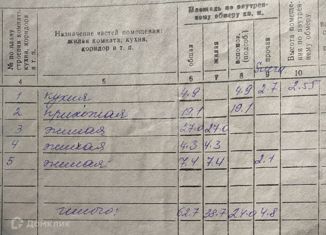 Площадь по внутрен-
нему обмеру кв. м.
№ по плану
строения-комната
кухня, коридор
и т. п.
Назначение частей помещения:
жилая комната, кухня,
коридор и т. п.
общая
жилая
вспомог.
(подсоб.)
Высота помеще-
ния по внутрен-
нему обмеру
4 5 6 7 8 9 10
1 кухня 4.9 4.9 2.7 2.55
2 прихожая 19.1 19.1
3 жилая 27.0 27.0
4 жилая 4.3 4.3
5 жилая 7.4 7.4 2.1
итого: 62.7 38.7 24.0 4.8
Домклик